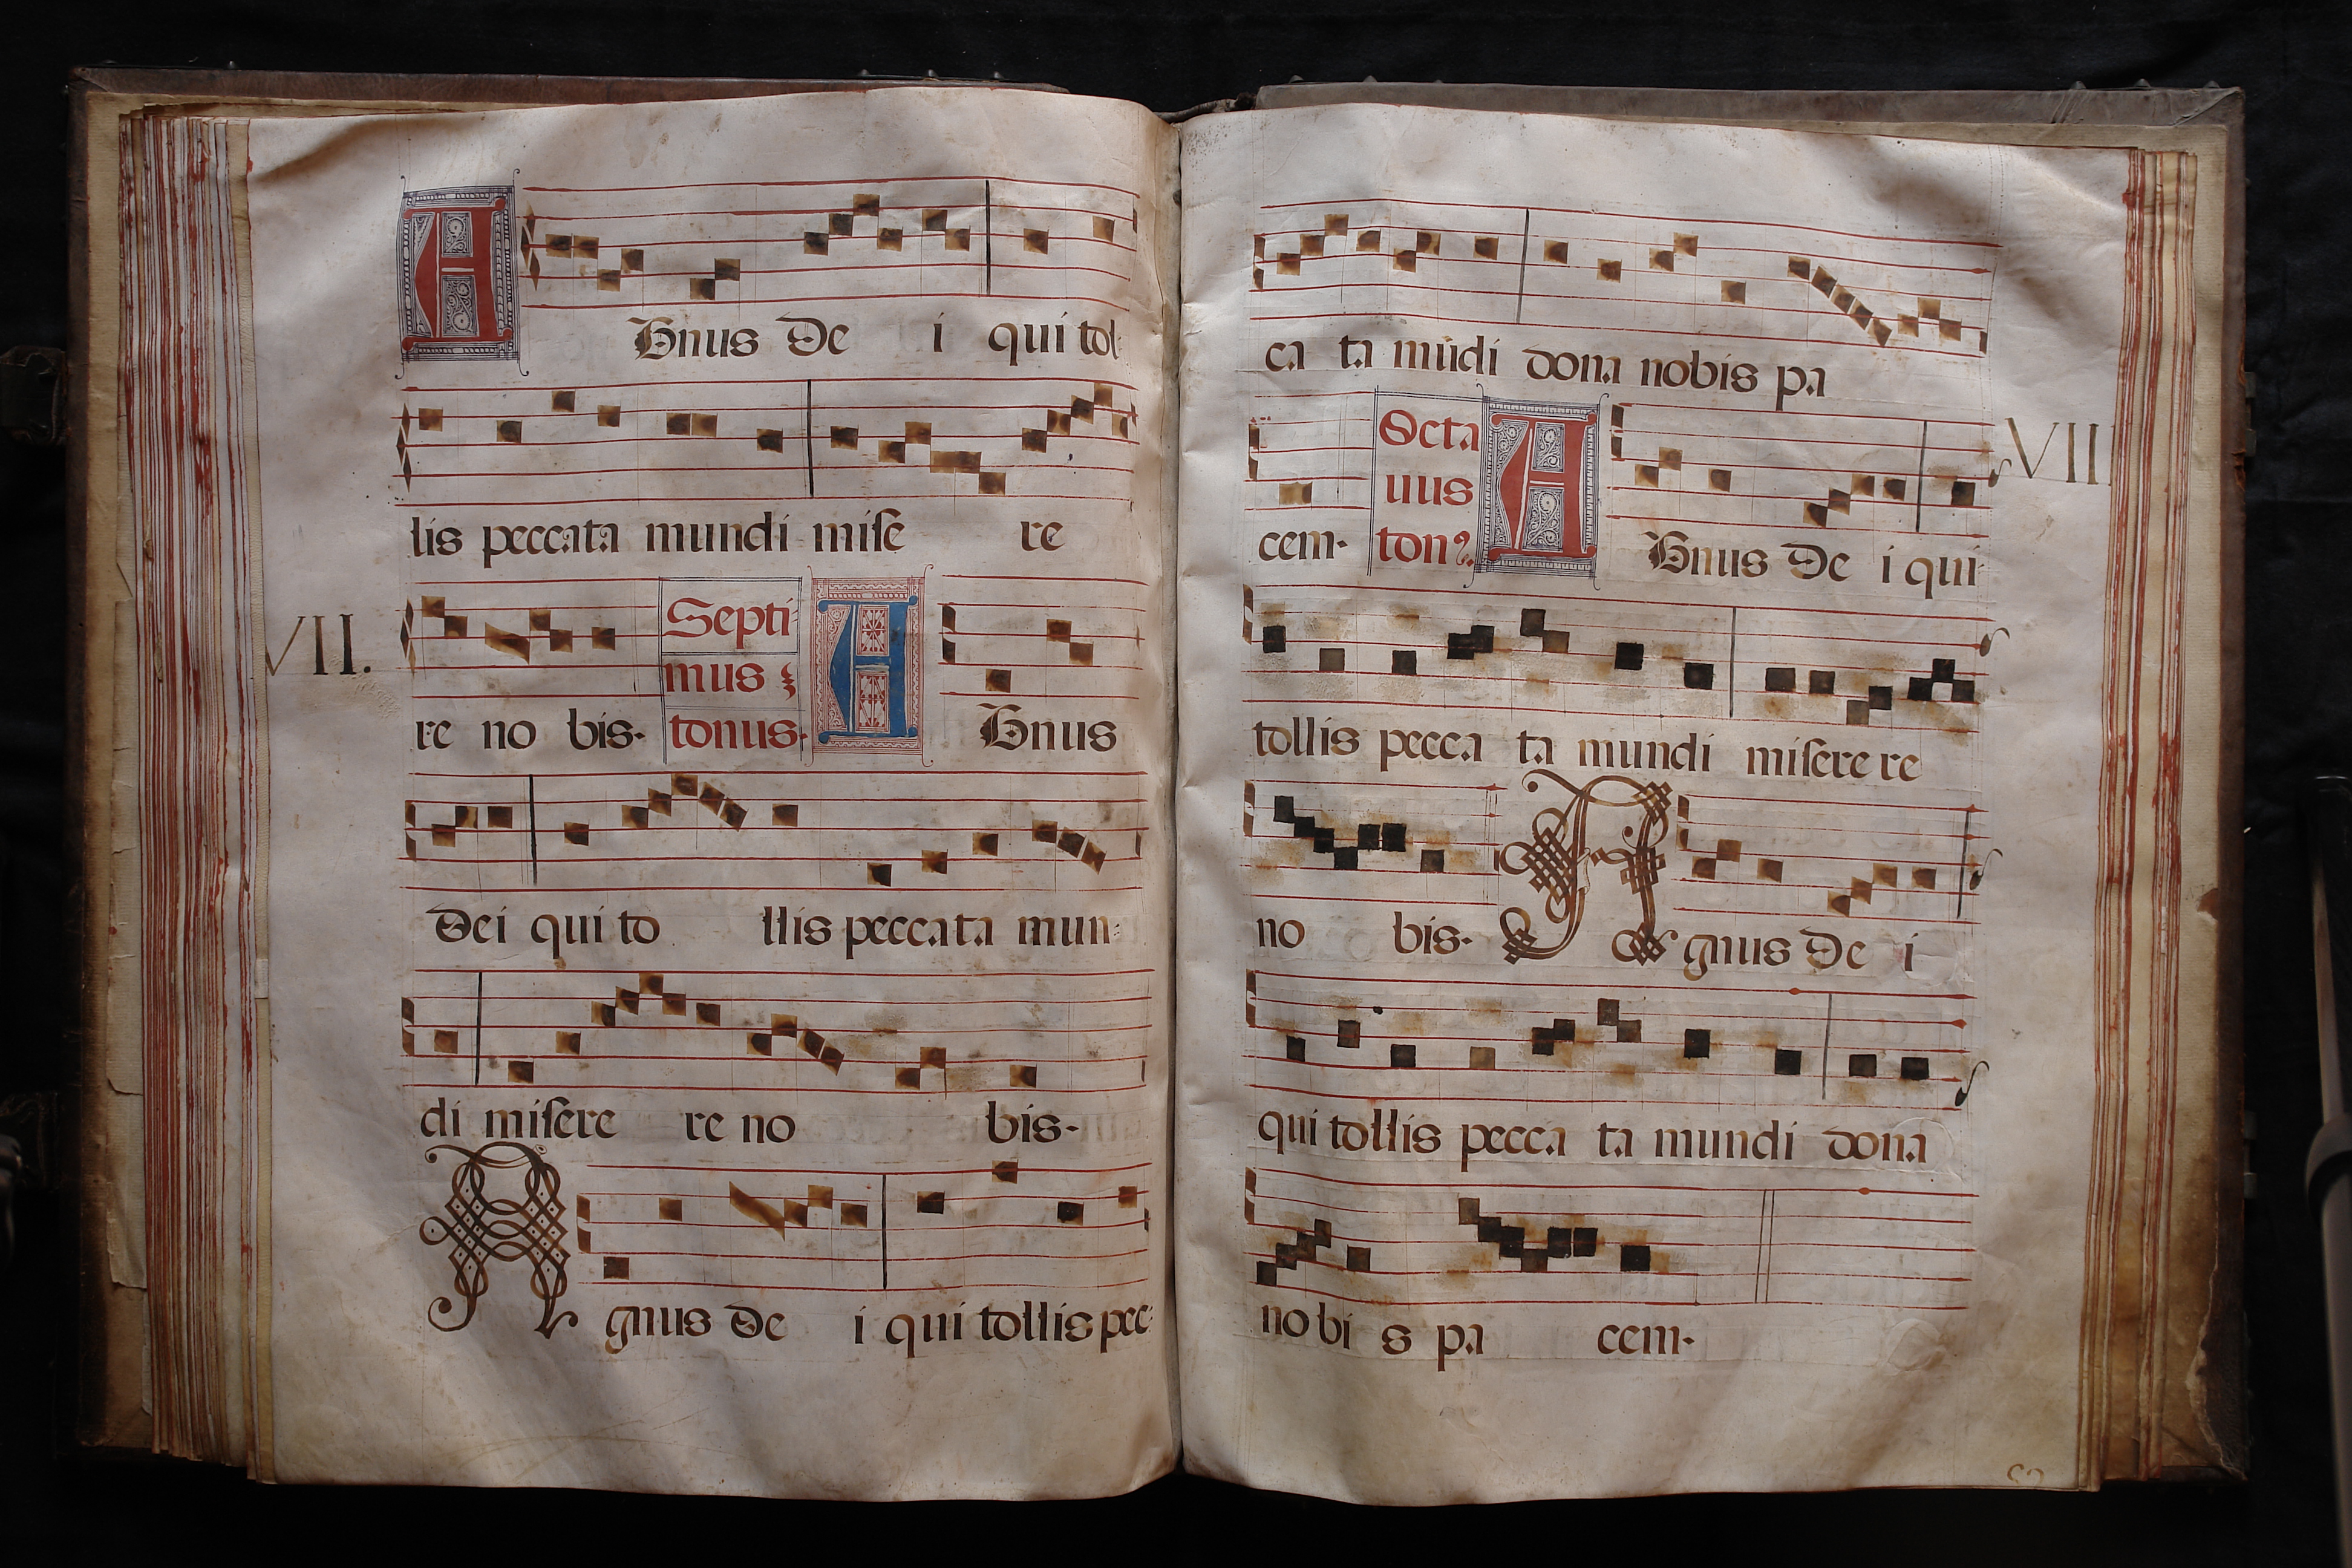 Agnus De i qui tol
lis peccata mundi mise re
VII.
re no bis. Septi
mus
tonus. Agnus
Dei qui to llis peccata mun
di misere re no bis.
Agnus De i qui tollis pec
ca ta mūdi dona nobis pa
cem. Octa
uus
ton⁹. Agnus De i qui
VII
tollis pecca ta mundi miserere
no bis. Agnus De i
qui tollis pecca ta mundi dona
nobi s pa cem.